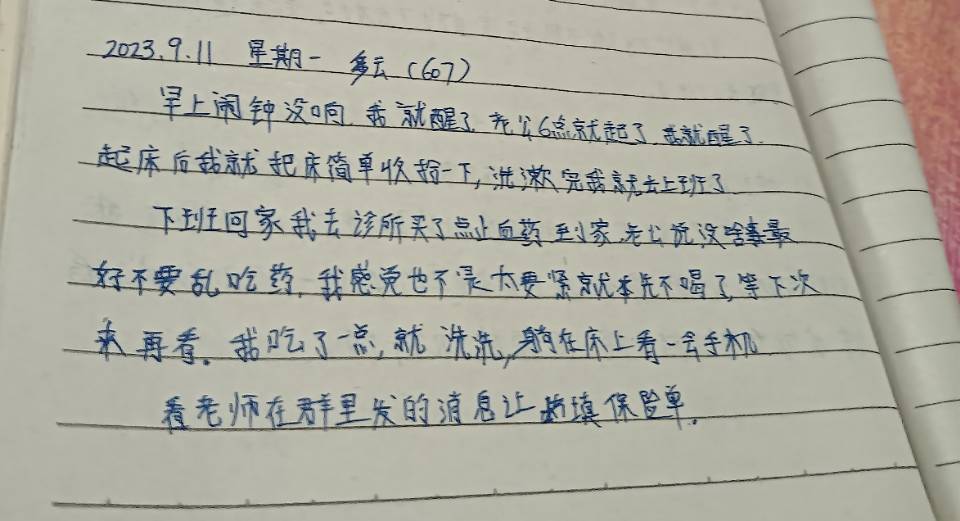 2023.9.11 星期一 多云(607)
早上闹钟没响 我就醒了 老公6点就起了 我就醒了.
起床后我就起床简单收拾一下,洗漱完我就去上班了
下班回家我去诊所买了点止血药 到家.老公说没啥事最
好不要乱吃药.我感觉也不是太要紧就先不喝了等下次
来再看.我吃了一点,就洗洗,躺在床上看一会手机
看老师在群里发的消息让填保险单.